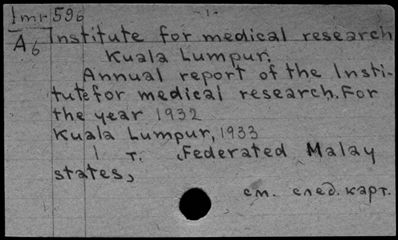 Imr 596 - 1 -
A6 Institute for medical research
Kuala Lumpur.
Annual report of the Insti-
tute for medical research. For
the year 1932
Kuala Lumpur, 1933
1 т. (Federated Malay
states)
см. след. карт.